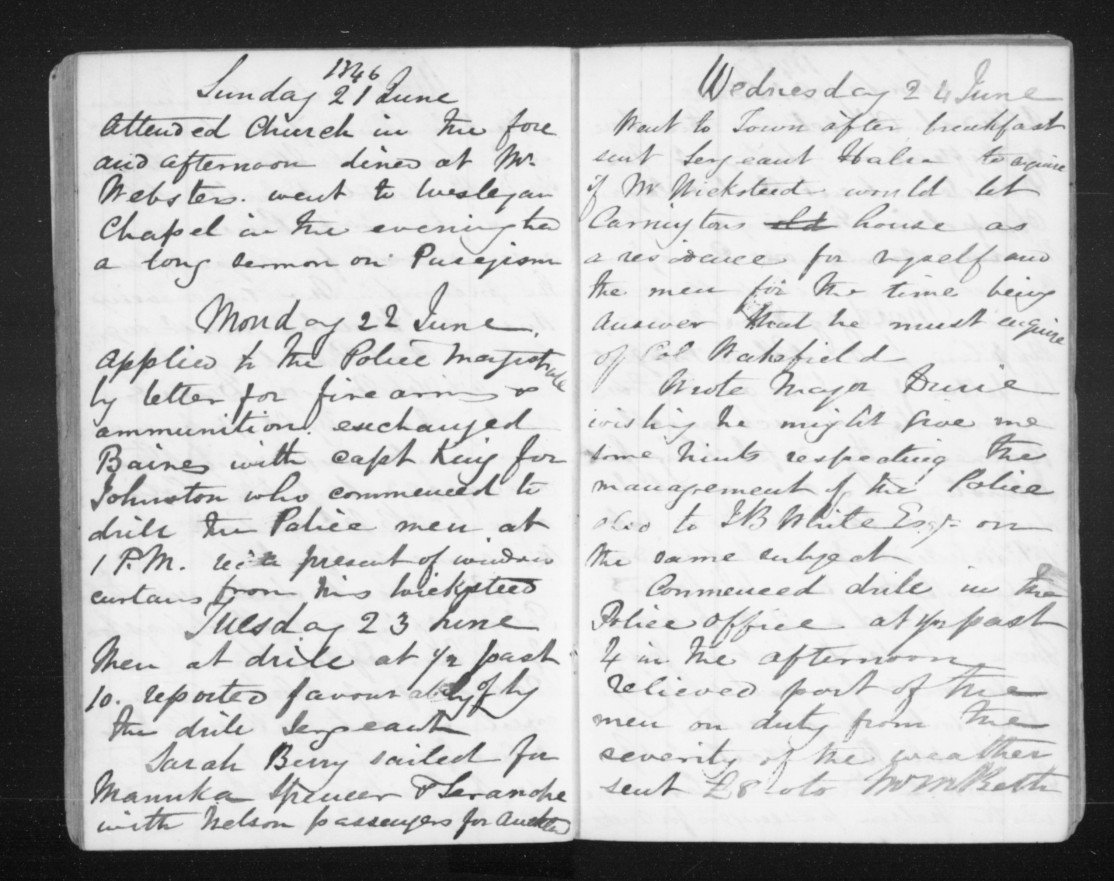 1846
Sunday 21 June
Attended Church in the fore
and afternoon dined at Mr
Websters. went to Wesleyan
Chapel in the evening had
a long sermon on Puseyism
Monday 22 June
applied to the Police Magistrate
by letter for fire arms &
ammunition. exchanged
Baines with Capt King for
Johnston who commenced to
drill the Police men at
1 P.M. present of window
curtains from Mrs Wicksteed
Tuesday 23 June
Men at drill at ½ past
10. reported favourably of by
the drill Sergeant
Sarah Berry sailed for
Manuka Spencer &
with Nelson passengers for
Wednesday 24 June
Went to Town after breakfast
sent Sergeant to enquire
if Mr Wicksteed would let
Carringtons old house as
a residence for myself and
the men for the time being
answer that he must enquire
of Col Wakefield
Wrote Major Durie
wishing he might give me
some hints respecting the
management of the Police
also to I B White Esqr on
the same subject
Commenced drill in the
Police office at ½ past
4 in the afternoon
relieved part of the
men on duty from the
severity of the weather
sent £8 to Mr